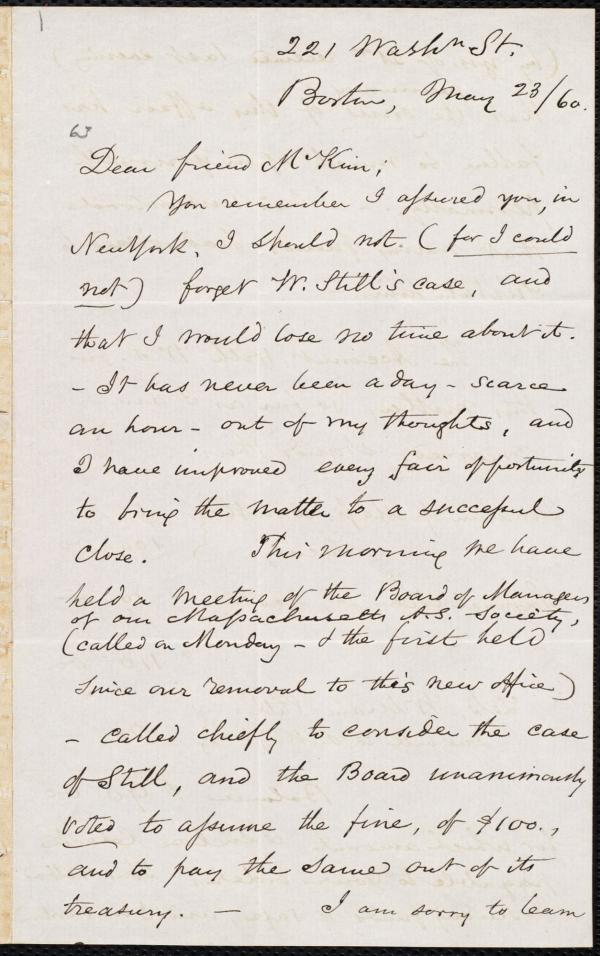 221 Washn St.
Boston, May 23/60.
63
Dear friend McKim;
You remember I assured you, in
New York, I should not (for I could
not) forget W. Still's case, and
that I would lose no time about it.
- It has never been a day - scarce
an hour - out of my thoughts, and
I have improved every fair opportunity
to bring the matter to a successful
close. This morning we have
held a meeting of the Board of Managers
of our Massachusetts A.S. Society,
(called on Monday - & the first held
since our removal to this new office)
- called chiefly to consider the case
of Still, and the Board unanimously
voted to assume the fine, of $100.,
and to pay the same out of its
treasury. — I am sorry to learn